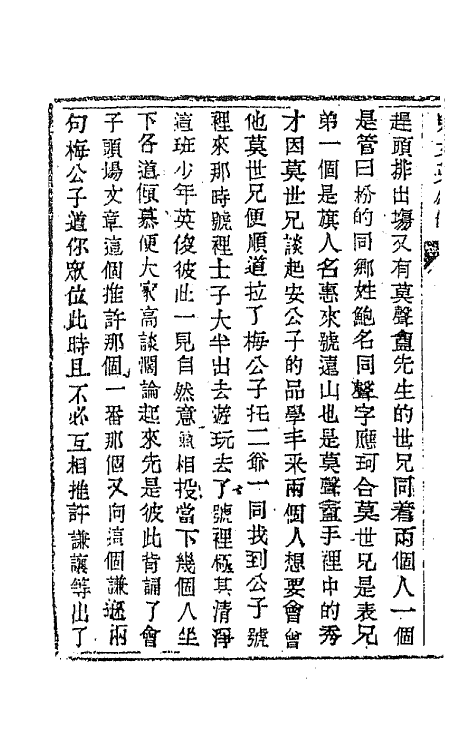 趕頭排出塲又有莫聲盦先生的世兄同着兩個人一個
是管曰枌的同鄉姓鮑名同聲字應珂合莫世兄是表兄
弟一個是旗人名惠來號遠山也是莫聲盦手裡中的秀
才因莫世兄談起安公子的品學丰采兩個人想要會會
他莫世兄便順道拉了梅公子托二爺一同找到公子號
裡來那時號裡士子大半出去遊玩去了號裡極其清淨
這班少年英俊彼此一見自然意氣相投當下幾個人坐
下各道傾慕便大家高談闊論起來先是彼此背誦了會
子頭塲文章這個推許那個一番那個又向這個謙遜兩
句梅公子道你眾位此時且不必互相推許謙讓等出了